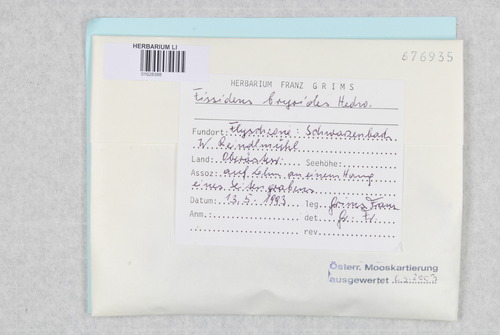 HERBARIUM LI
676935
HERBARIUM FRANZ GRIMS
Fissidens bryoides Hedw.
Fundort: Flyschzone: Schwarzenbach
W
Land: Oberösterr. Seehöhe:
Assoz: auf Lehm an einem Hang
eines Seitengrabens
Datum: 13.5.1993 leg. Grims Franz
Anm.: det Gr. Fr.
rev
Österr. Mooskartierung
ausgewertet